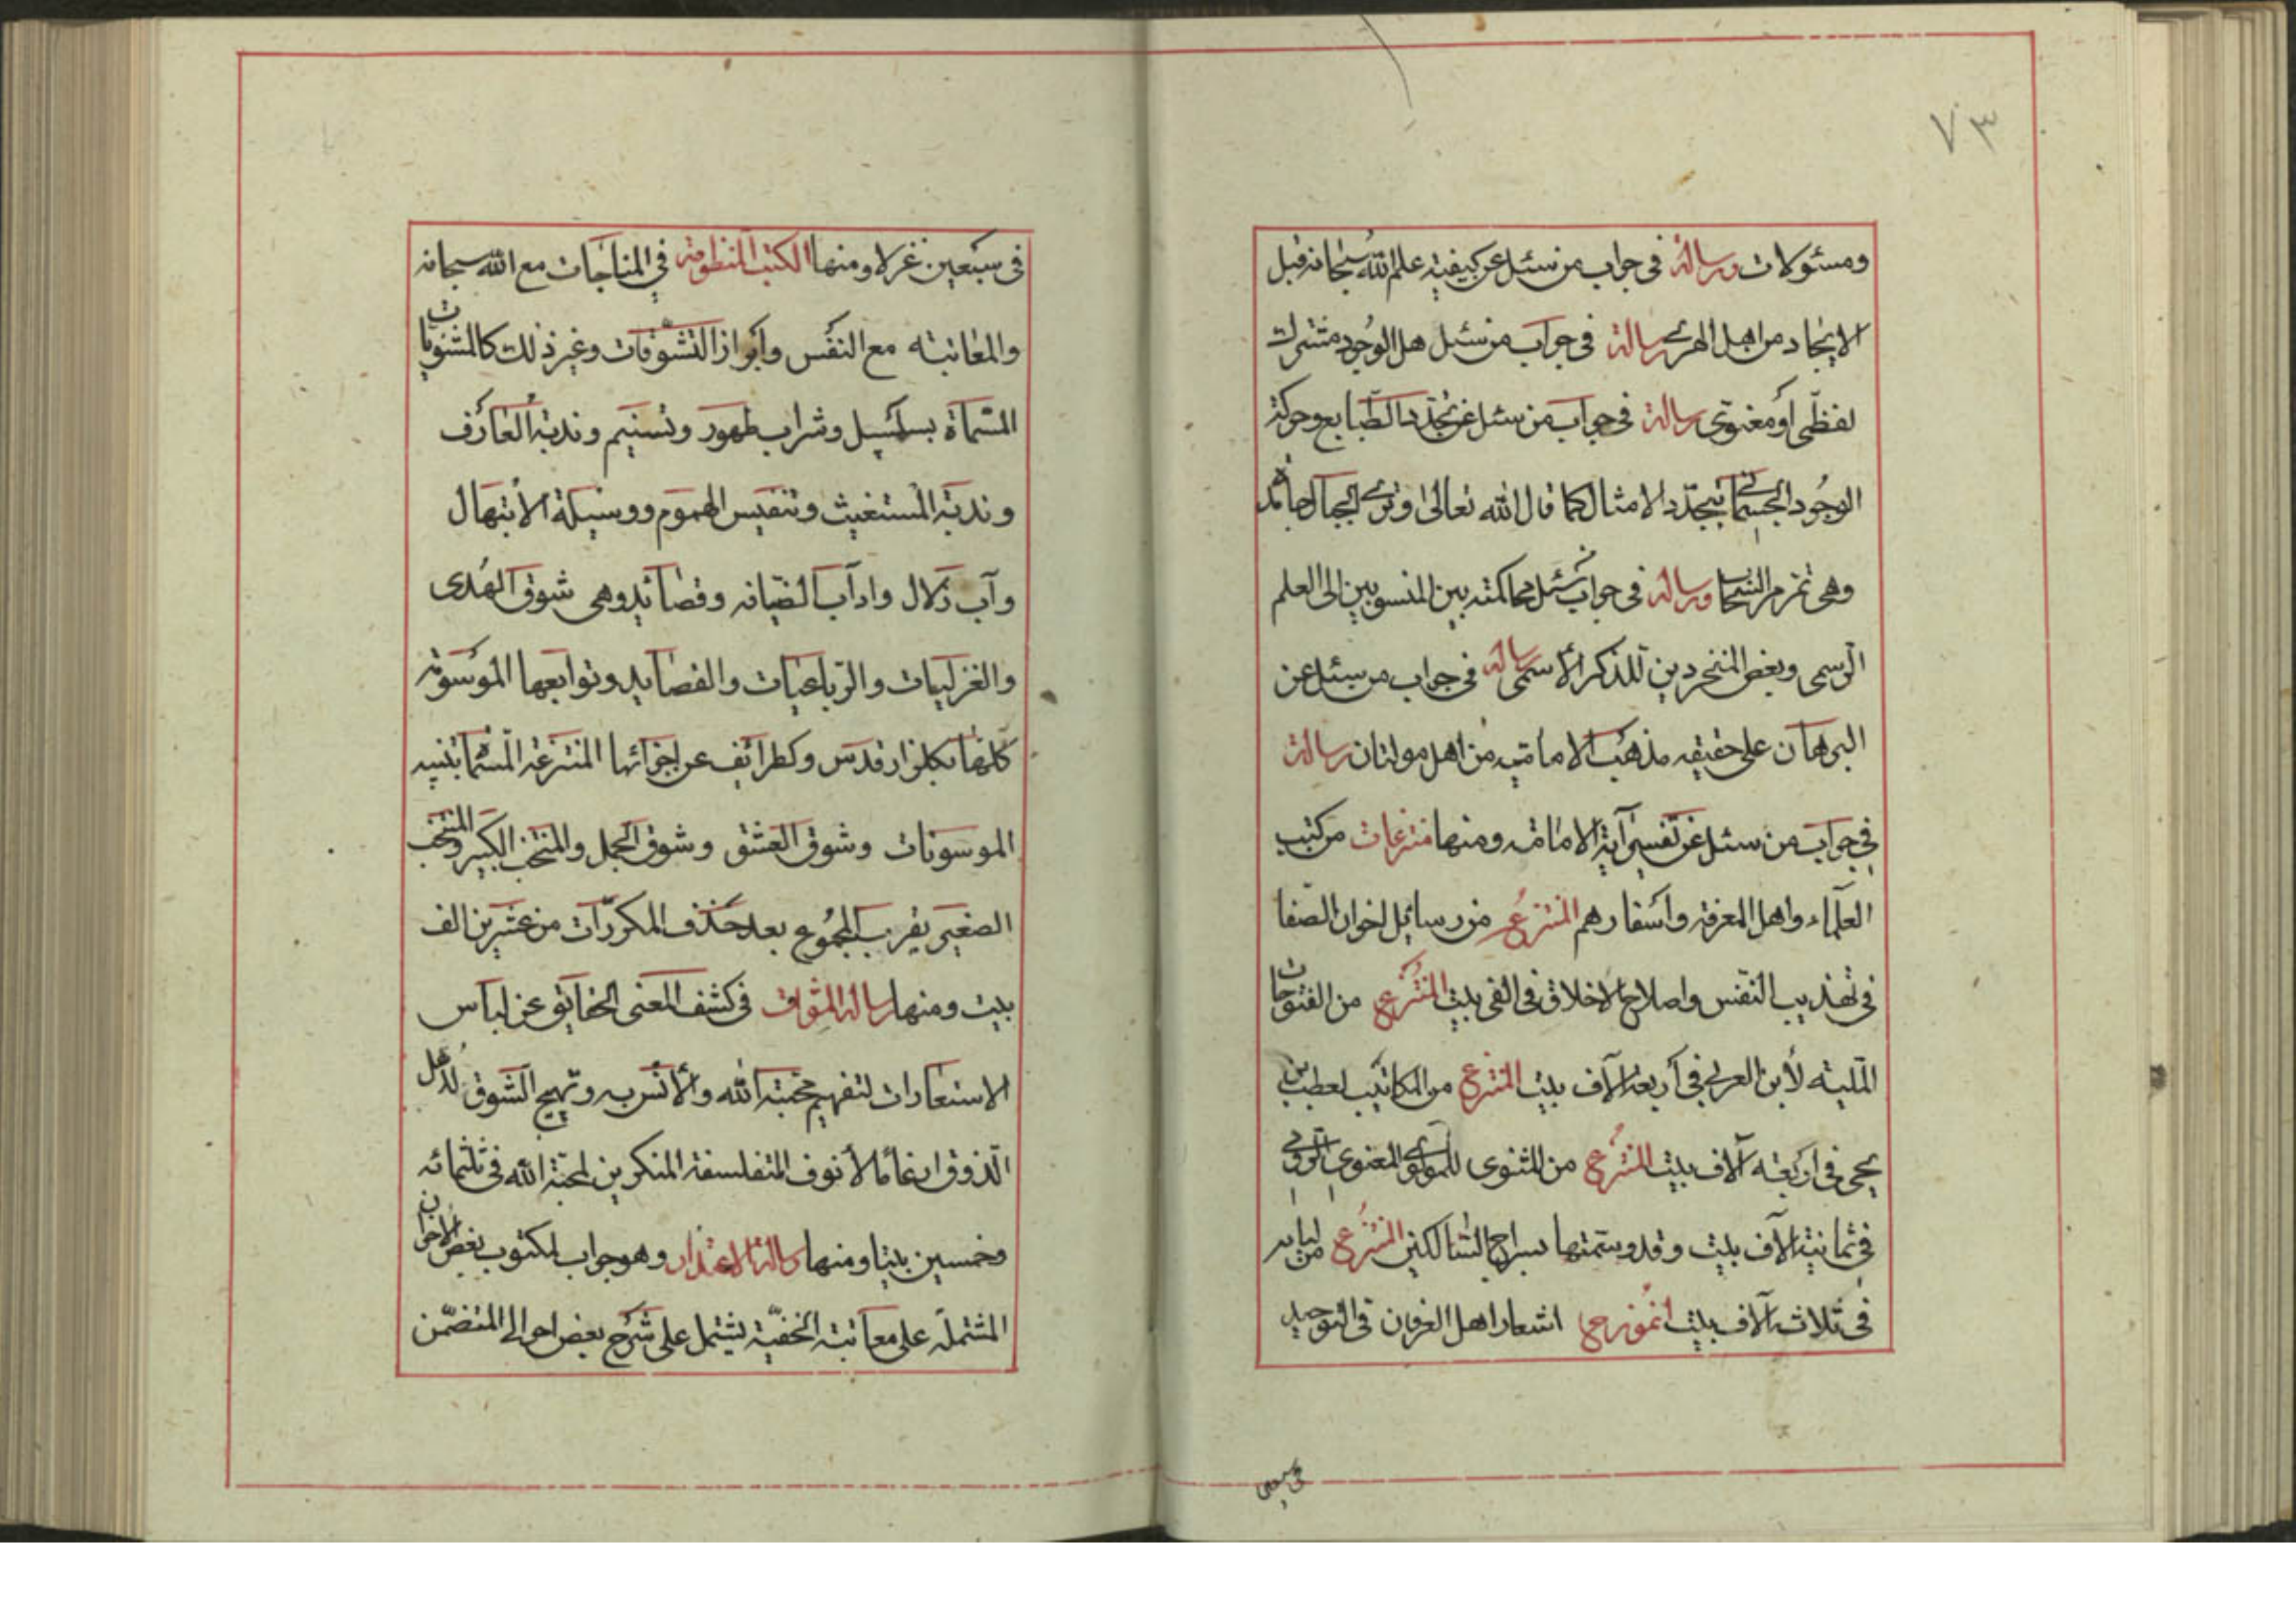 ٧٣
ومسئولات ورسالة فى جواب من سئل عن كيفية علم الله سبحانه قبل
الايجاد من اهل الهرى رسالة فى جواب من سئل هل الوجود مشترك
لفظى او معنوى رسالة فى جواب من سئل عن تجدد الطبايع وحركة
الوجود الجسمانى بتجدد الامثال كما قال الله تعالى وترى الجبال جامدة
وهى تمر مر السحاب ورسالة فى جواب من سئل محاكمته بين المنسوبين الى العلم
الرسمى وبعض المنخردين للذكر الأسمى رسالة فى جواب من سئل عن
البرهان على حقيقه مذهب الامامية من اهل مولتان رسالة
فى جواب من سئل عن تفسير آية الامانة ومنها منتزعات من كتب
العلماء واهل المعرفة واسفارهم المنتزع من رسايل اخوان الصفا
فى تهذيب النفس واصلاح الاخلاق فى الفى بيت المنتزع من الفتوحات
المكية لأبن العربى فى أربعة آلاف بيت المنتزع من المكاتيب لعطب بن
يحيى فى اربعه آلاف بيت المنتزع من المثنوى للمولوى المعنوى الرومى
فى ثمانية آلاف بيت وقد وسمتها بسراج السالكين المنتزع من لبابه
فى ثلاث آلاف بيت انموزج اشعار اهل العرفان فى التوحيد
فى سبعين
فى سبعين غزلا ومنها الكتب المنظومة فى المناجات مع الله سبحانه
والمعاتبه مع النفس وأبراز التشوقات وغير ذلك كالمثنويات
المسماة بسلسبيل وشراب طهور وتسنيم وندبة العارف
وندبة المستغيث وتنفيس الهموم ووسيلة الأبتهال
وآب زلال وادآب الضيانه وقصائد وهى شوق الهدى
والغزليات والرباعيات والقصايد وتوابعها الموسومة
كلها بكلزار قدس وكطرائف عن اجزائها المنتزعة المسما بتنبيه
الموسونات وشوق العشق وشوق الجمل والمنتخب الكبير والمنتخب
الصغير يقرب المجموع بعد حذف المكررات من عشرين الف
بيت ومنها رسالة المشواق فى كشف المعنى الحقايق عن لباس
الاستعارات لتفهيم محبة الله والأنس به وتهيج الشوق لاهل
الذوق ارغامًا لأنوف المتفلسفة المنكرين لمحبة الله فى ثلثمائه
وخمسين بيتا ومنها رسالة الاعتذار وهو جواب لمكتوب بعض الاخوان
المشتملة على معاتبة الخفية يشتمل على شرح بعض احوالى المتضمن